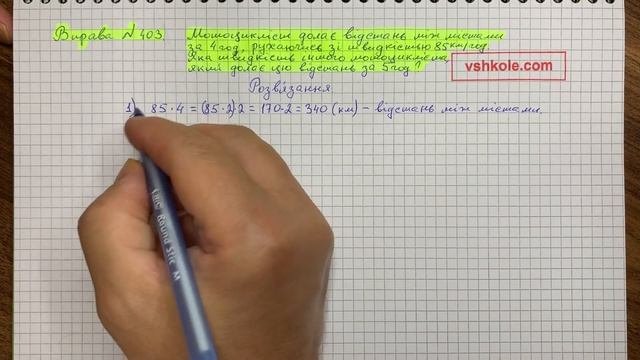 Вправа №403. Мотоцикліст долає відстань між містами
за 4 год, рухаючись зі швидкістю 85 км/год.
Яка швидкість іншого мотоцикліста,
який долає цю відстань за 5 год?
vshkole.com
Розв'язання
1) 85·4 = (85·2)·2 = 170·2 = 340 (км) – відстань між містами.
BIC Round Stic M